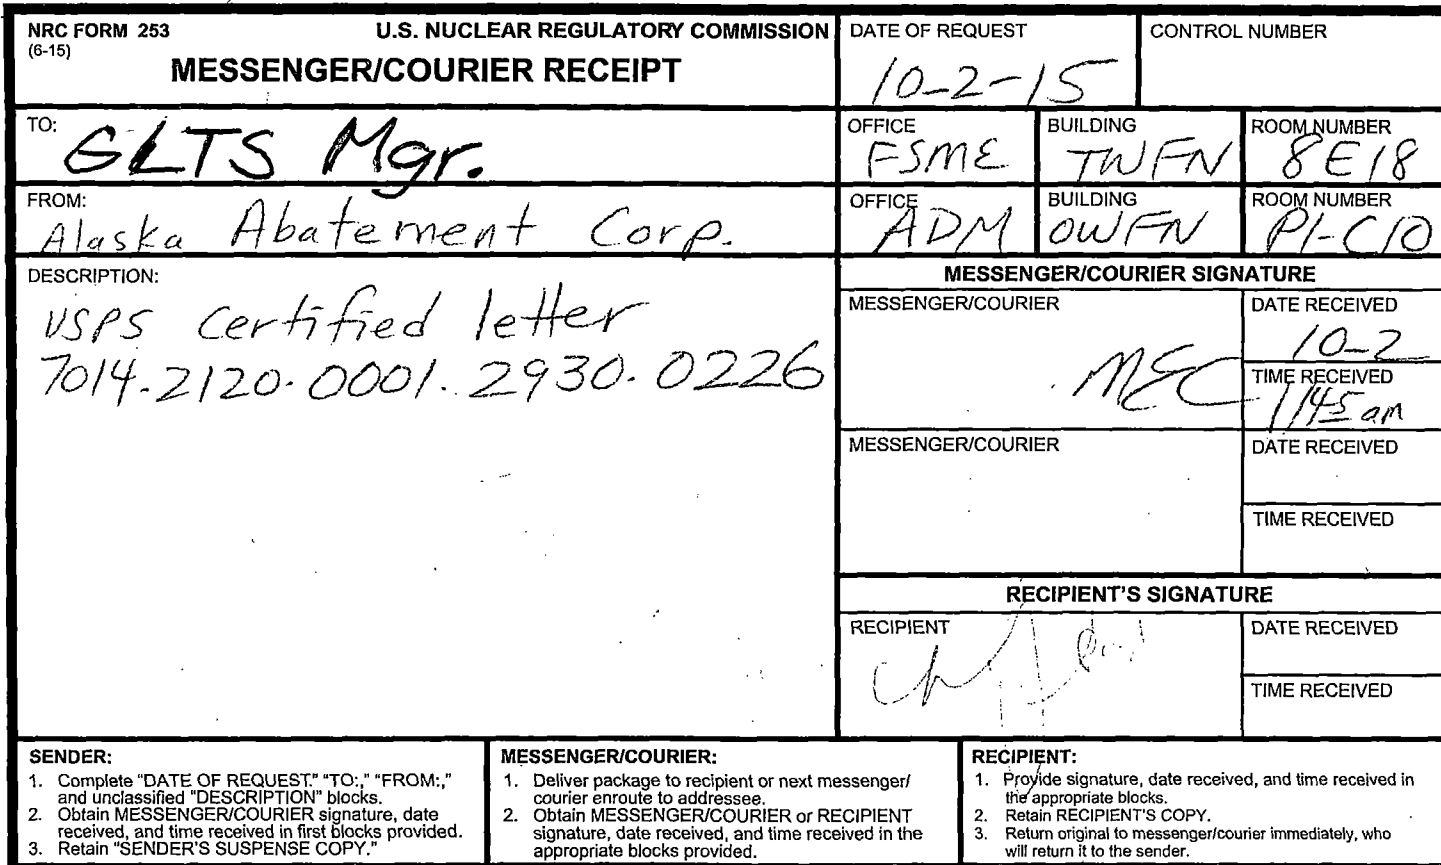 NRC FORM 253
(6-15)
U.S. NUCLEAR REGULATORY COMMISSION
MESSENGER/COURIER RECEIPT
DATE OF REQUEST
10-2-15
CONTROL NUMBER
TO:
GLTS Mgr.
OFFICE
FSME
BUILDING
TWFN
ROOM NUMBER
8E18
FROM:
Alaska Abatement Corp.
OFFICE
ADM
BUILDING
OWFN
ROOM NUMBER
P1-C10
DESCRIPTION:
USPS Certified letter
7014.2120.0001.2930.0226
MESSENGER/COURIER SIGNATURE
MESSENGER/COURIER
MEC
DATE RECEIVED
10-2
TIME RECEIVED
1145 am
MESSENGER/COURIER
DATE RECEIVED
TIME RECEIVED
RECIPIENT'S SIGNATURE
RECIPIENT
DATE RECEIVED
TIME RECEIVED
SENDER:
1. Complete "DATE OF REQUEST" "TO:," "FROM:,"
and unclassified "DESCRIPTION" blocks.
2. Obtain MESSENGER/COURIER signature, date
received, and time received in first blocks provided.
3. Retain "SENDER'S SUSPENSE COPY."
MESSENGER/COURIER:
1. Deliver package to recipient or next messenger/
courier enroute to addressee.
2. Obtain MESSENGER/COURIER or RECIPIENT
signature, date received, and time received in the
appropriate blocks provided.
RECIPIENT:
1. Provide signature, date received, and time received in
the appropriate blocks.
2. Retain RECIPIENT'S COPY.
3. Return original to messenger/courier immediately, who
will return it to the sender.